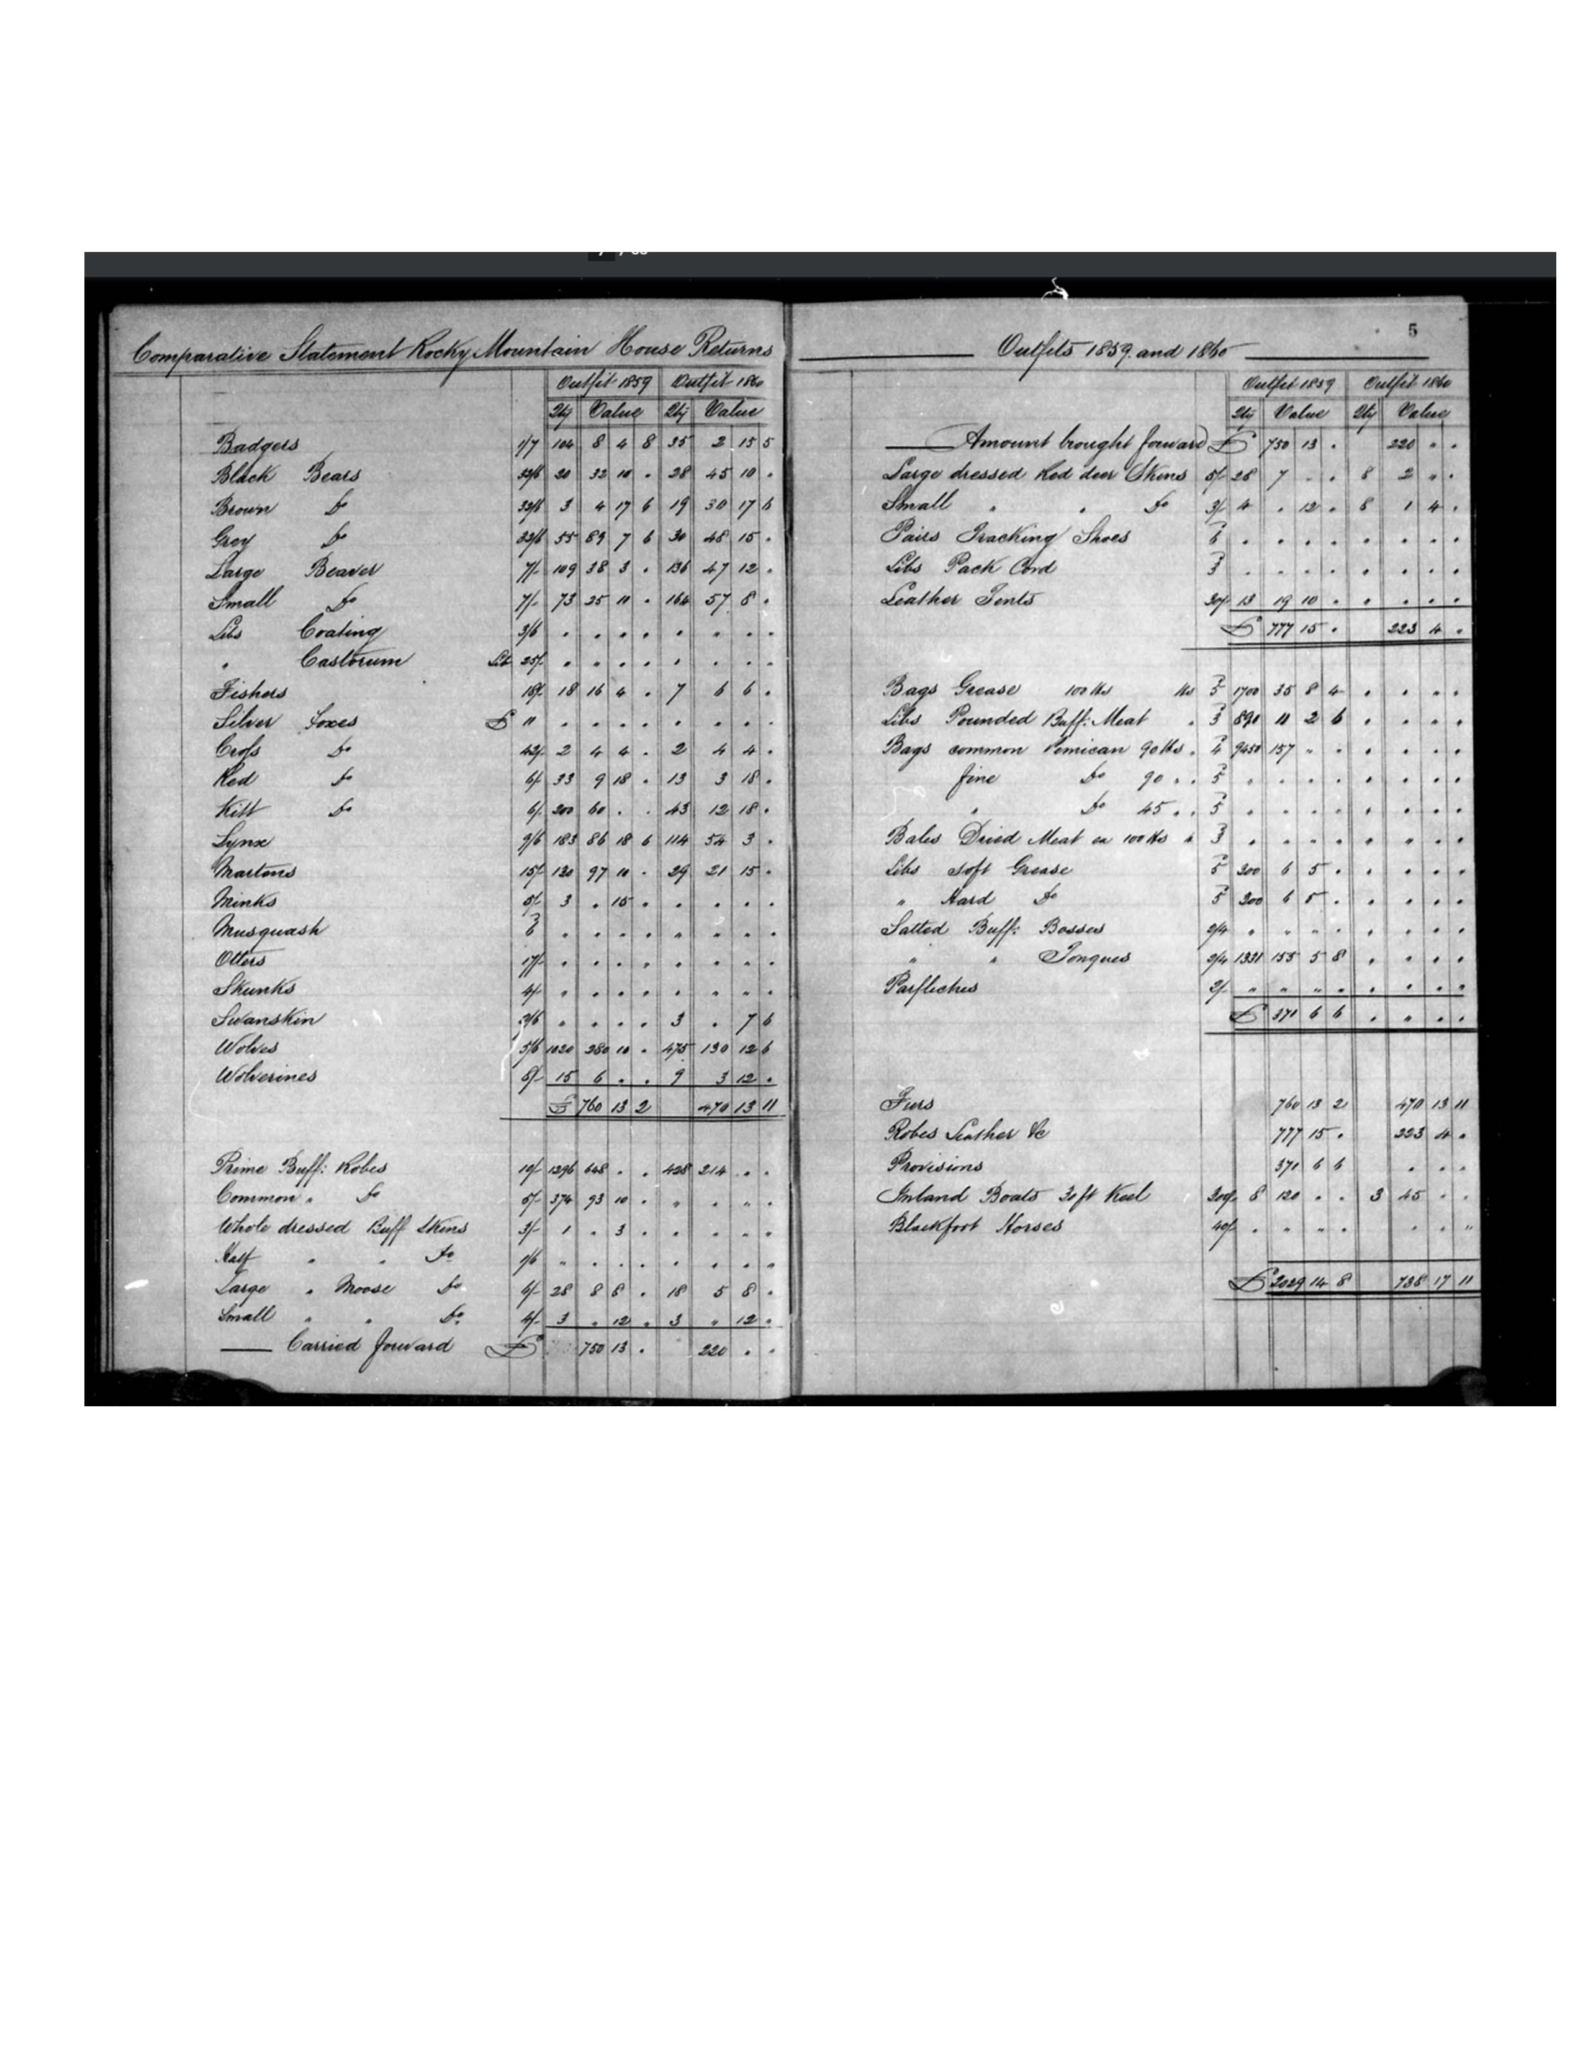 Comparative Statement Rocky Mountain House Returns
Outfit 1859 Outfit 1860
Qty Value Qty Value
Badgers 1/7 104 8 4 8 35 2 15 5
Black Bears 32/6 20 32 10 . 28 45 10 .
Brown Do 32/6 3 4 17 6 19 30 17 6
Grey Do 32/6 55 89 7 6 30 48 15 .
Large Beaver 7/- 109 38 3 . 136 47 12 .
Small Do 7/- 73 25 11 . 164 57 8 .
Libs Coating 3/6 . . . . . . . .
" Castorum Lib 25/- . . . . . . . .
Fishers 18/- 18 16 4 . 7 6 6 .
Silver Foxes £ 11 . . . . . . . .
Cross Do 42/- 2 4 4 . 2 4 4 .
Red Do 6/- 33 9 18 . 13 3 18 .
Kitt Do 6/- 200 60 . . 43 12 18 .
Lynx 9/6 183 86 18 6 114 54 3 .
Martens 15/- 130 97 10 . 29 21 15 .
Minks 5/- 3 . 15 . . . . .
Musquash 6 . . . . . . . .
Otters 17/- . . . . . . . .
Skunks 4/- . . . . . . . .
Swanskin 2/6 . . . . 3 . 7 6
Wolves 5/6 1020 280 10 . 475 130 12 6
Wolverines 8/- 15 6 . . 9 3 12 .
£ 760 13 2 470 13 11
Prime Buff: Robes 10/- 1296 648 . . 428 214 . .
Common " Do 5/- 374 93 10 . " . " .
Whole dressed Buff Skins 3/- 1 . 3 . . . . .
Half " " Do 1/6 " . . . . . . .
Large " Moose Do 6/- 28 8 8 . 18 5 8 .
Small " " Do 4/- 3 . 12 . 3 " 12 .
Carried forward £ 750 13 . 220 . .
5
Outfits 1859 and 1860
Outfit 1859 Outfit 1860
Qty Value Qty Value
Amount brought forward £ 750 13 . 220 . .
Large dressed Red deer Skins 5/- 28 7 . . 8 2 . .
Small " " Do 3/- 4 . 12 . 8 1 4 .
Pairs Tracking Shoes 6 . . . . . . . .
Libs Pack Cord 3 . . . . . . . .
Leather Tents 30/- 13 19 10 . . . . .
£ 777 15 . 223 4 .
Bags Grease 100 lbs lbs 5 1700 35 8 4 . . . .
Libs Pounded Buff: Meat " 3 890 11 2 6 . . . .
Bags common Pemican 90 lbs . 4 9450 157 " . . . . .
fine Do 90 . . 5 . . . . . . . .
" Do 45 . . 5 . . . . . . . .
Bales Dried Meat ea 100 lbs " 3 . . . . . . . .
Libs Soft Grease 5 300 6 5 . . . . .
" Hard Do 5 300 6 5 . . . . .
Salted Buff: Bosses 2/4 . . . . . . . .
" " Tongues 2/4 1331 155 5 8 . . . .
Parfleches 2/- " " " . . . . .
£ 371 6 6 . . . .
Furs 760 13 2 470 13 11
Robes Leather &c 777 15 . 223 4 .
Provisions 371 6 6 . . .
Inland Boats 30 ft Keel 300/- 8 120 . . 3 45 . .
Blackfoot Horses 40/- . . . . . . .
£ 2029 14 8 738 17 11